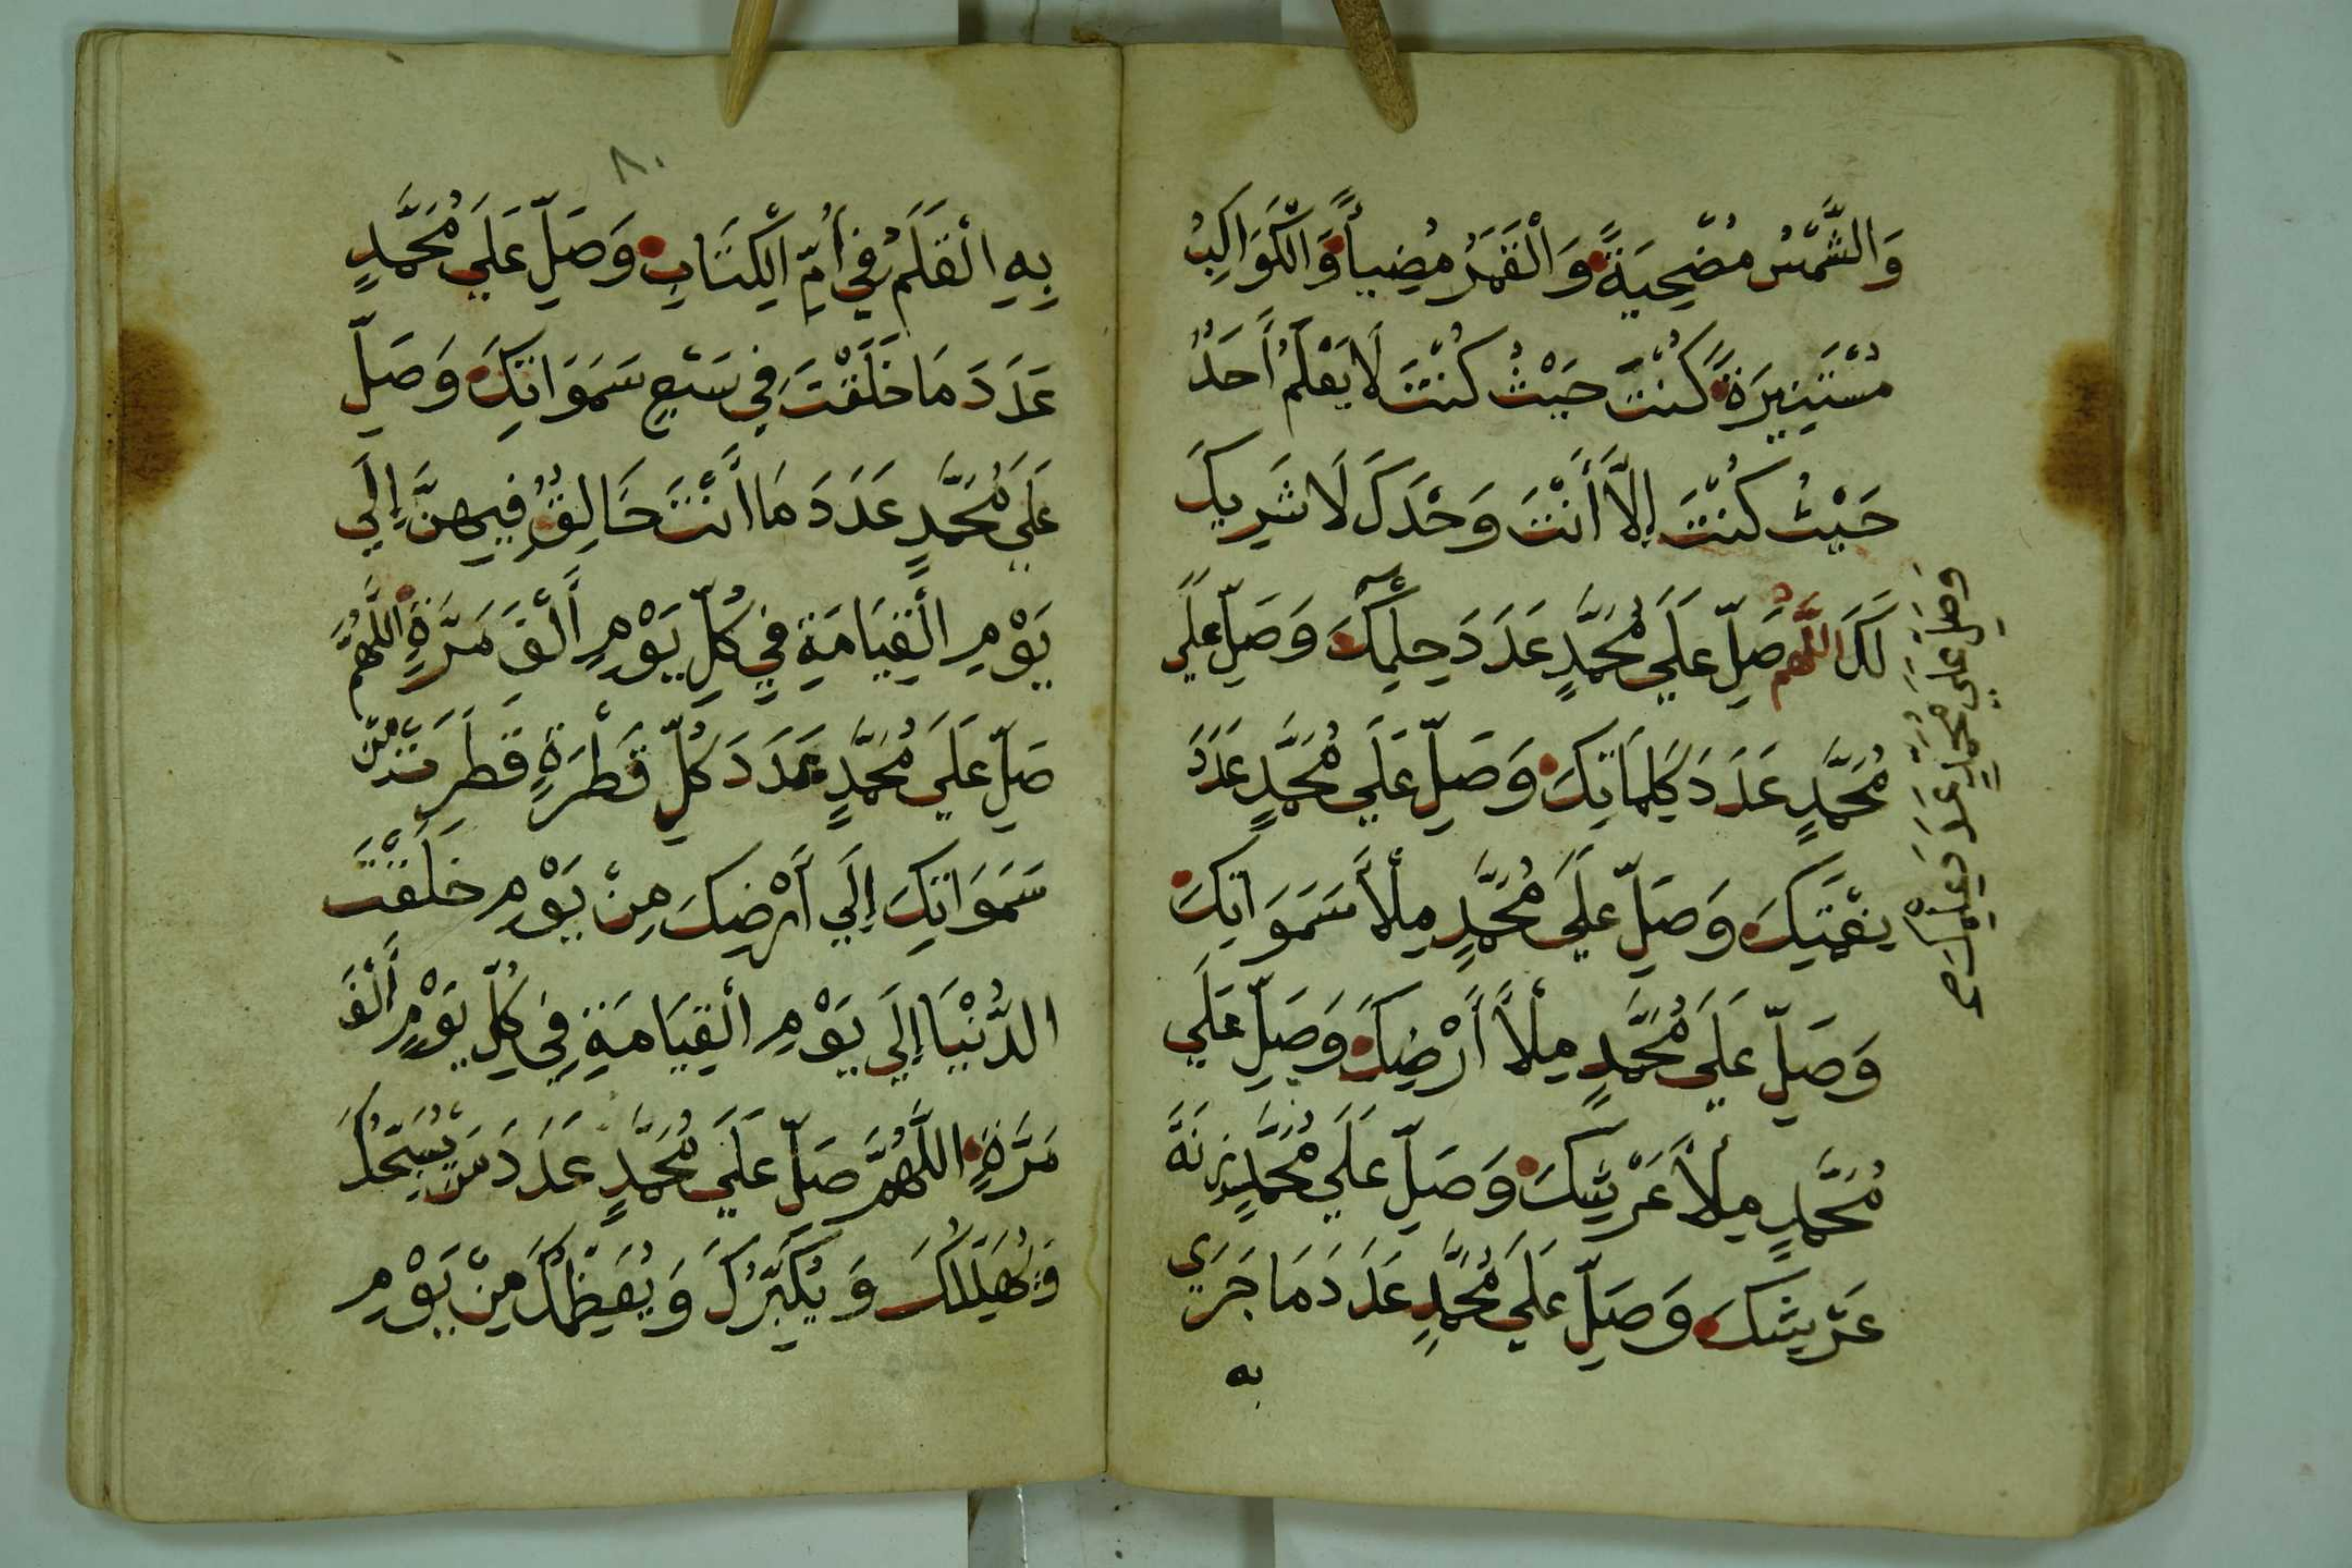 وَالشَّمْسُ مُضْحِيَةً وَالْقَمَرُ مُضِيأً وَّالْكَوَاكِبُ
مُسْتَنِيرَةً كُنْتَ حَيْثُ كُنْتَ لَا يَعْلَمُ أَحَدٌ
حَيْثُ كُنْتَ إِلَّا أَنْتَ وَحْدَكَ لَا شَرِيكَ
لَكَ اللَّهُمَّ صَلِّ عَلَي مُحَمَّدٍ عَدَدَ حِلْمِكَ وَصَلِّ عَلَي
مُحَمَّدٍ عَدَدَ كَلِمَاتِكَ وَصَلِّ عَلَي مُحَمَّدٍ عَدَدَ
نِعْمَتِكَ وَصَلِّ عَلَي مُحَمَّدٍ مِلْأَ سَمَوَاتِكَ
وَصَلِّ عَلَي مُحَمَّدٍ مِلْأَ أَرْضِكَ وَصَلِّ عَلَي
مُحَمَّدٍ مِلْأَ عَرْشِكَ وَصَلِّ عَلَي مُحَمَّدٍ زِنَةَ
عَرْشِكَ وَصَلِّ عَلَي مُحَمَّدٍ عَدَدَ مَا جَرَي
به
وَصَلِّ عَلَي مُحَمَّدٍ عَدَدَ عِلْمِكَ صح
٨٠
بِهِ الْقَلَمُ فِي أُمِّ الْكِتَابِ وَصَلِّ عَلَي مُحَمَّدٍ
عَدَدَ مَا خَلَقْتَ فِي سَبْعِ سَمَوَاتِكَ وَصَلِّ
عَلَي مُحَمَّدٍ عَدَدَ مَا أَنْتَ خَالِقٌ فِيهِنَّ إِلَي
يَوْمِ الْقِيَامَةِ فِي كُلِّ يَوْمٍ أَلْفَ مَرَّةٍ اللَّهُمَّ
صَلِّ عَلَي مُحَمَّدٍ عَدَدَ كُلِّ قَطْرَةٍ قَطَرَتْ مِنْ
سَمَوَاتِكَ إِلَي أَرْضِكَ مِنْ يَوْمِ خَلَقْتَ
الدُّنْيَا إِلَي يَوْمِ الْقِيَامَةِ فِي كُلِّ يَوْمٍ أَلْفَ
مَرَّةٍ اللَّهُمَّ صَلِّ عَلَي مُحَمَّدٍ عَدَدَ مَنْ يُسَبِّحُكَ
وَيُهَلِّلُكَ وَيُكَبِّرُكَ وَيُعَظِّمُكَ مِنْ يَوْمِ